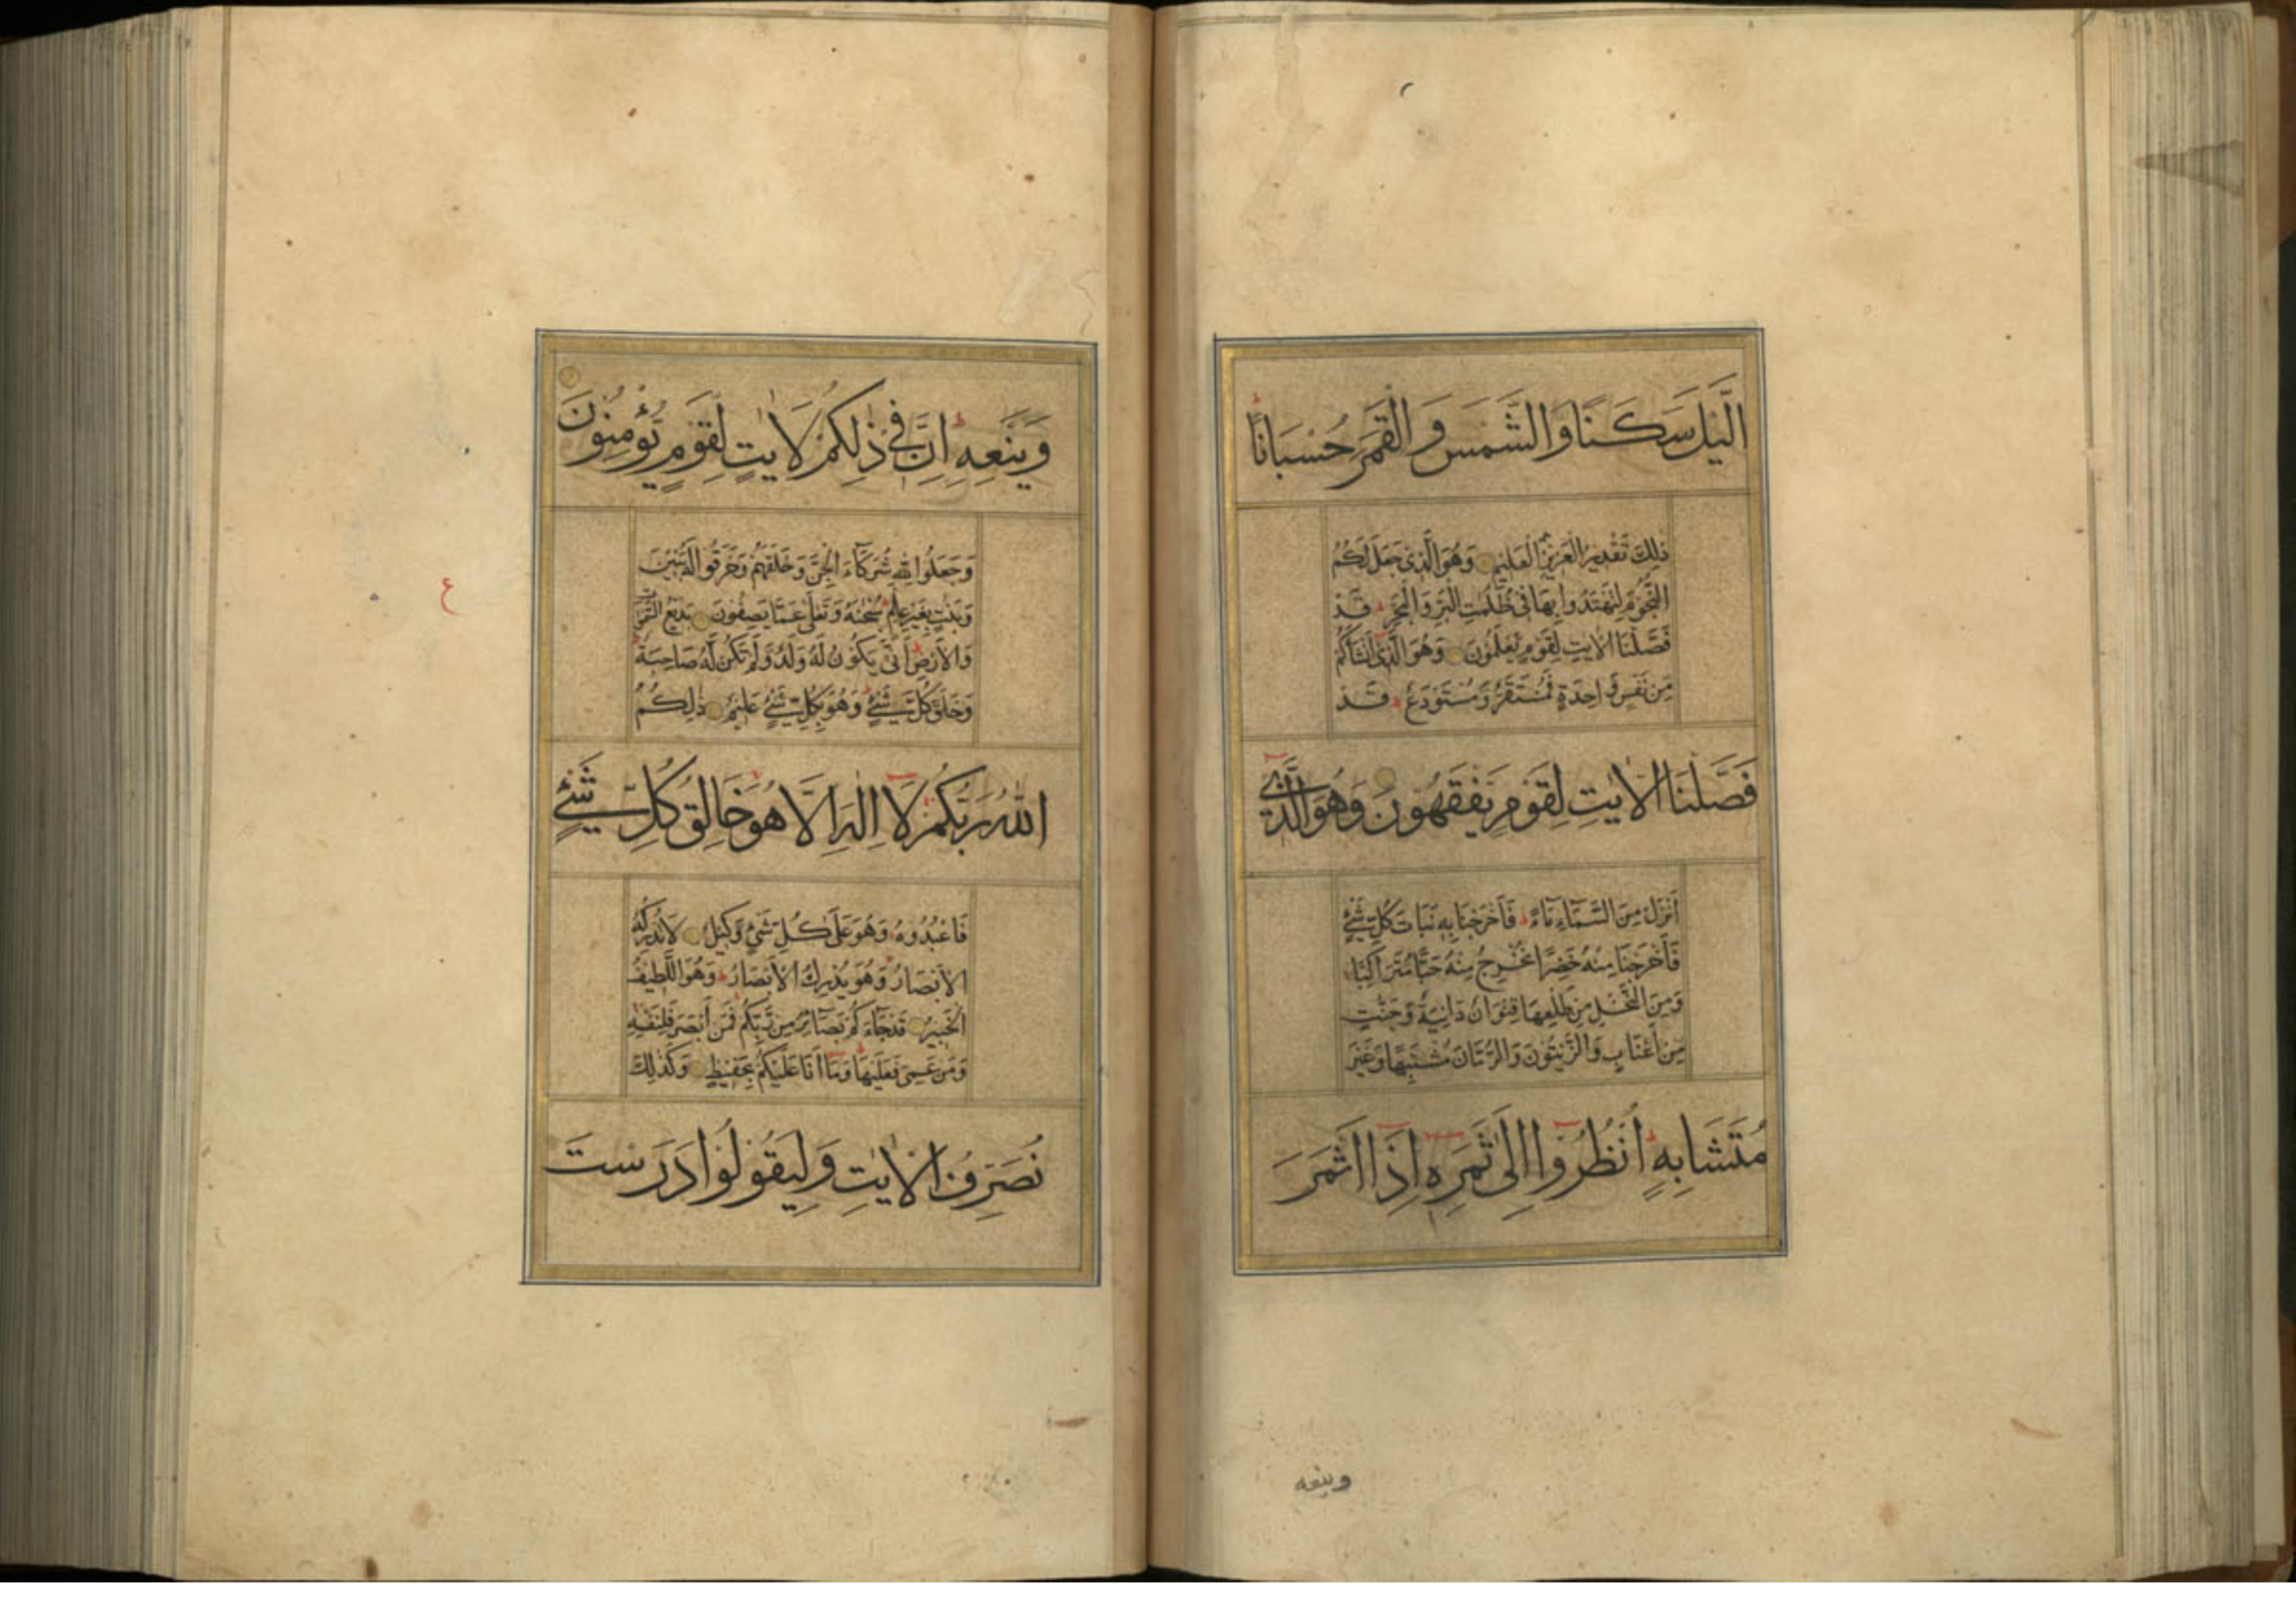 الَّيْلَ سَكَنًا وَالشَّمْسَ وَالْقَمَرَ حُسْبَانًا
ذٰلِكَ تَقْدِيْرُ الْعَزِيْزِ الْعَلِيْمِ وَهُوَ الَّذِى جَعَلَ لَكُمُ
النُّجُوْمَ لِتَهْتَدُوا بِهَا فِى ظُلُمٰتِ الْبَرِّ وَالْبَحْرِ قَدْ
فَصَّلْنَا الْاٰيٰتِ لِقَوْمٍ يَعْلَمُوْنَ وَهُوَ الَّذِى اَنْشَاَكُمْ
مِنْ نَفْسٍ وَاحِدَةٍ فَمُسْتَقَرٌّ وَمُسْتَوْدَعٌ قَدْ
فَصَّلْنَا الْاٰيٰتِ لِقَوْمٍ يَفْقَهُوْنَ وَهُوَ الَّذِى
اَنْزَلَ مِنَ السَّمَاءِ مَاءً فَاَخْرَجْنَا بِهِ نَبَاتَ كُلِّ شَىْءٍ
فَاَخْرَجْنَا مِنْهُ خَضِرًا نُخْرِجُ مِنْهُ حَبًّا مُتَرَاكِبًا
وَمِنَ النَّخْلِ مِنْ طَلْعِهَا قِنْوَانٌ دَانِيَةٌ وَجَنّٰتٍ
مِنْ اَعْنَابٍ وَالزَّيْتُوْنَ وَالرُّمَّانَ مُشْتَبِهًا وَغَيْرَ
مُتَشَابِهٍ اُنْظُرُوْا اِلٰى ثَمَرِهِ اِذَا اَثْمَرَ
وينعه
وَيَنْعِهِ اِنَّ فِى ذٰلِكُمْ لَاٰيٰتٍ لِقَوْمٍ يُؤْمِنُوْنَ
وَجَعَلُوا لِلّٰهِ شُرَكَاءَ الْجِنَّ وَخَلَقَهُمْ وَخَرَقُوا لَهُ بَنِيْنَ
وَبَنٰتٍ بِغَيْرِ عِلْمٍ سُبْحٰنَهُ وَتَعٰلٰى عَمَّا يَصِفُوْنَ بَدِيْعُ السَّمٰوٰتِ
ع
وَالْاَرْضِ اَنّٰى يَكُوْنُ لَهُ وَلَدٌ وَلَمْ تَكُنْ لَهُ صَاحِبَةٌ
وَخَلَقَ كُلَّ شَىْءٍ وَهُوَ بِكُلِّ شَىْءٍ عَلِيْمٌ ذٰلِكُمُ
اللّٰهُ رَبُّكُمْ لَا اِلٰهَ اِلَّا هُوَ خَالِقُ كُلِّ شَىْءٍ
فَاعْبُدُوْهُ وَهُوَ عَلٰى كُلِّ شَىْءٍ وَكِيْلٌ لَا تُدْرِكُهُ
الْاَبْصَارُ وَهُوَ يُدْرِكُ الْاَبْصَارَ وَهُوَ اللَّطِيْفُ
الْخَبِيْرُ قَدْ جَاءَكُمْ بَصَائِرُ مِنْ رَبِّكُمْ فَمَنْ اَبْصَرَ فَلِنَفْسِهِ
وَمَنْ عَمِىَ فَعَلَيْهَا وَمَا اَنَا عَلَيْكُمْ بِحَفِيْظٍ وَكَذٰلِكَ
نُصَرِّفُ الْاٰيٰتِ وَلِيَقُوْلُوْا دَرَسْتَ